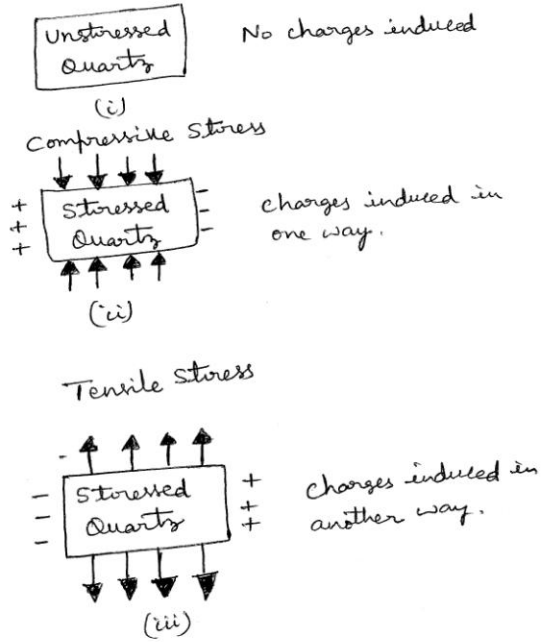 Unstressed
Quartz
No charges induced
(i)
Compressive Stress
+
+
+
Stressed
Quartz
-
-
-
charges induced in
one way.
(ii)
Tensile Stress
-
-
-
Stressed
Quartz
+
+
+
charges induced in
another way.
(iii)